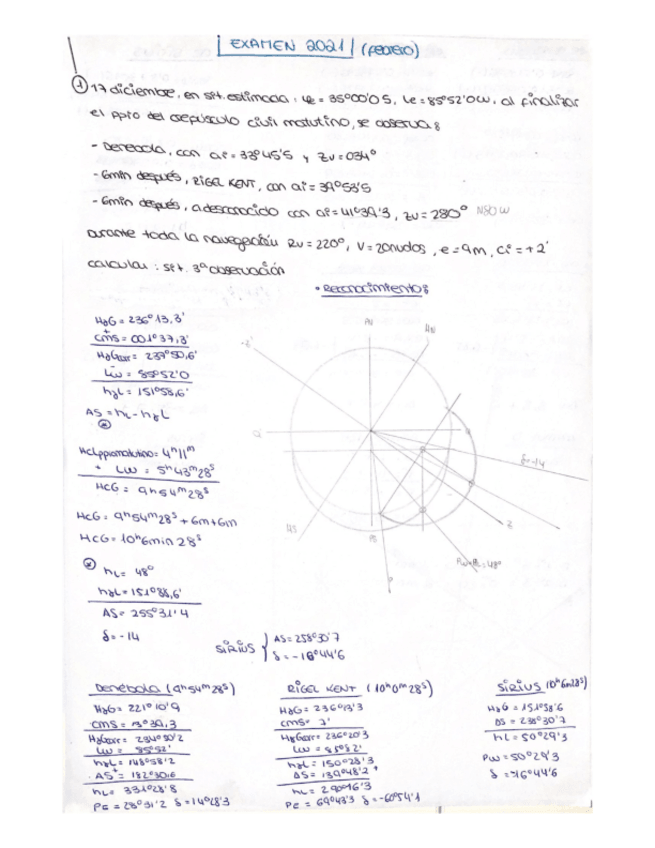 EXAMEN 2021 (FEBRERO)
① 17 diciembre, en sit. estimada: le = 35°00'0 S, Le = 85°52'0 W, al finalizar
el ppio del crepúsculo civil matutino, se observa:
- Denebola, con ai = 33°45'5 y Zv = 034°
- 6min después, RIGEL KENT, con ai = 39°53'5
- 6min después, a desconocido con ai = 41°39'3, Zv = 280° N80W
durante toda la navegación Rv = 220°, V = 20 nudos, e = 9m, Ci = +2'
calcular: sit. 3ª observación
• Reconocimiento:
HγG = 236° 13,3'
+ CmS = 001° 37,3'
HγGcorr = 237° 50,6'
- Lw = 85°52'0
hγL = 151°58,6'
AS = hL - hγL
HcLppiomatutino = 4h 11m
+ Lw = 5h 43m 28s
HcG = 9h 54m 28s
HcG = 9h 54m 28s + 6m + 6m
HcG = 10h 6min 28s
hL = 48°
hγL = 151°58,6'
AS = 255°31'4
δ = -14
AN
HN
-Z'
Q'
Q
δ = -14
Z
HS
PS
P
SIRIUS { AS = 258°30'7
δ = -16°44'6
Denebola (9h 54m 28s)
HγG = 221° 10'9
CmS = 13° 39,3
HγGcorr = 234° 50'2
Lw = 85°52'
hγL = 148°58'2
AS = 182°30,6
hL = 331°28'8
Pe = 28°31'2 δ = 14°28'3
RIGEL KENT (10h 0m 28s)
HγG = 236°13'3
CmS = 7'
HγGcorr = 236°20'3
Lw = 85°52'
hγL = 150°28'3
AS = 139°48'2
hL = 290°16'3
Pe = 69°43'3 δ = -60°54'1
SIRIUS (10h 6m 28s)
HγG = 151°58'6
AS = 258°30'7
hL = 50°29'3
Pw = 50°29'3
δ = -16°44'6